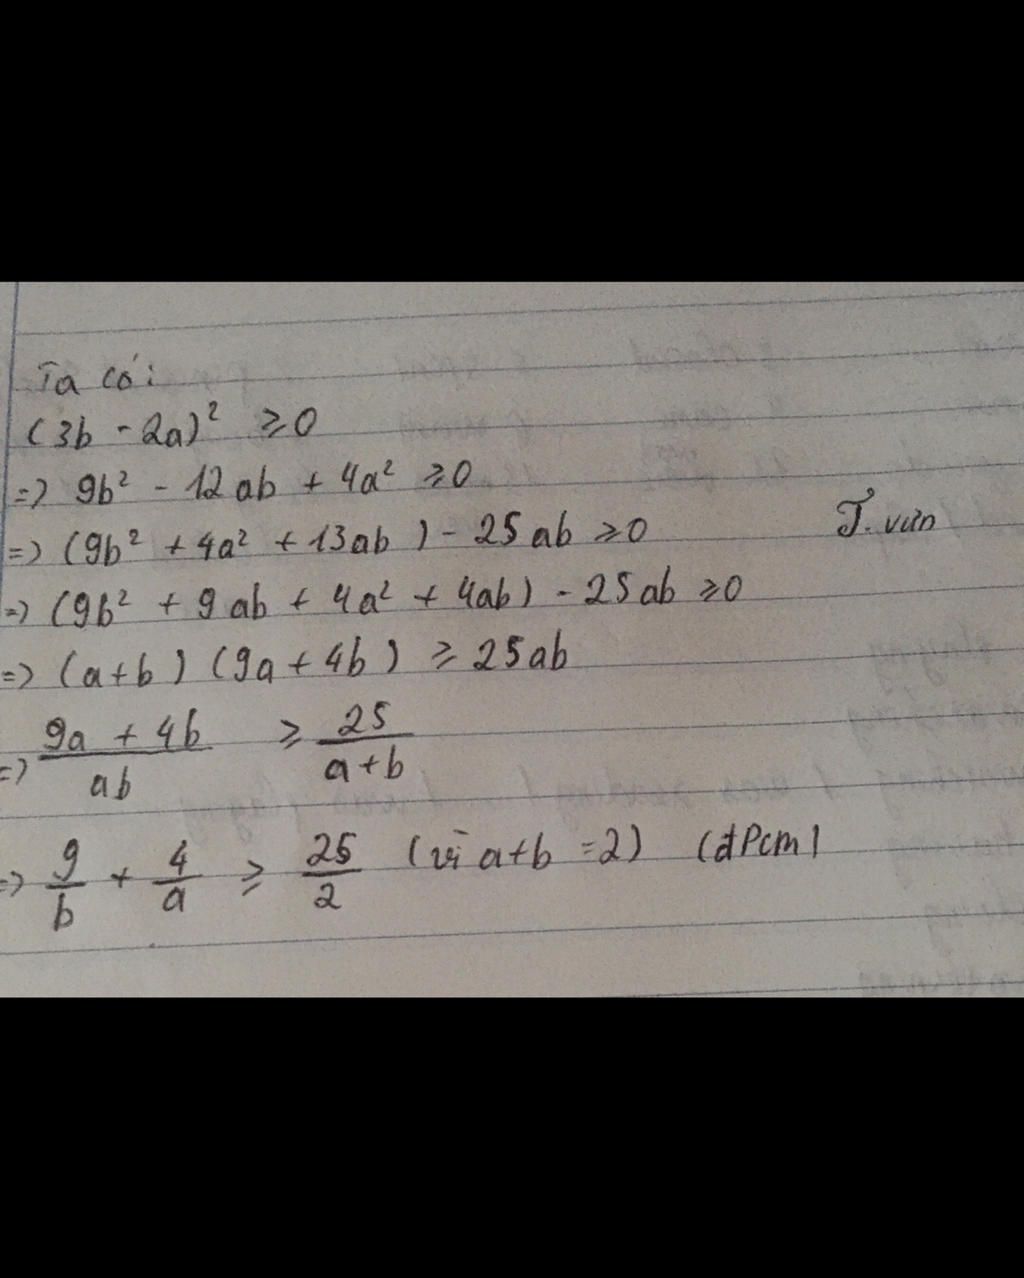 Ta có:
(3b - 2a)² ≥ 0
=> 9b² - 12ab + 4a² ≥ 0
=> (9b² + 4a² + 13ab) - 25ab ≥ 0
T. vân
=> (9b² + 9ab + 4a² + 4ab) - 25ab ≥ 0
=> (a+b) (9a + 4b) ≥ 25ab
=> \frac{9a + 4b}{ab} ≥ \frac{25}{a+b}
=> \frac{9}{b} + \frac{4}{a} ≥ \frac{25}{2} (vì a+b = 2) (đPcm)